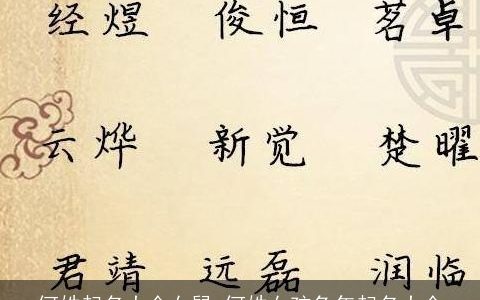 经煜 俊恒 茗卓
云烨 新觉 楚曜
君靖 远磊 润临
何姓起名大全女鼠 何姓女孩兔年起名大全